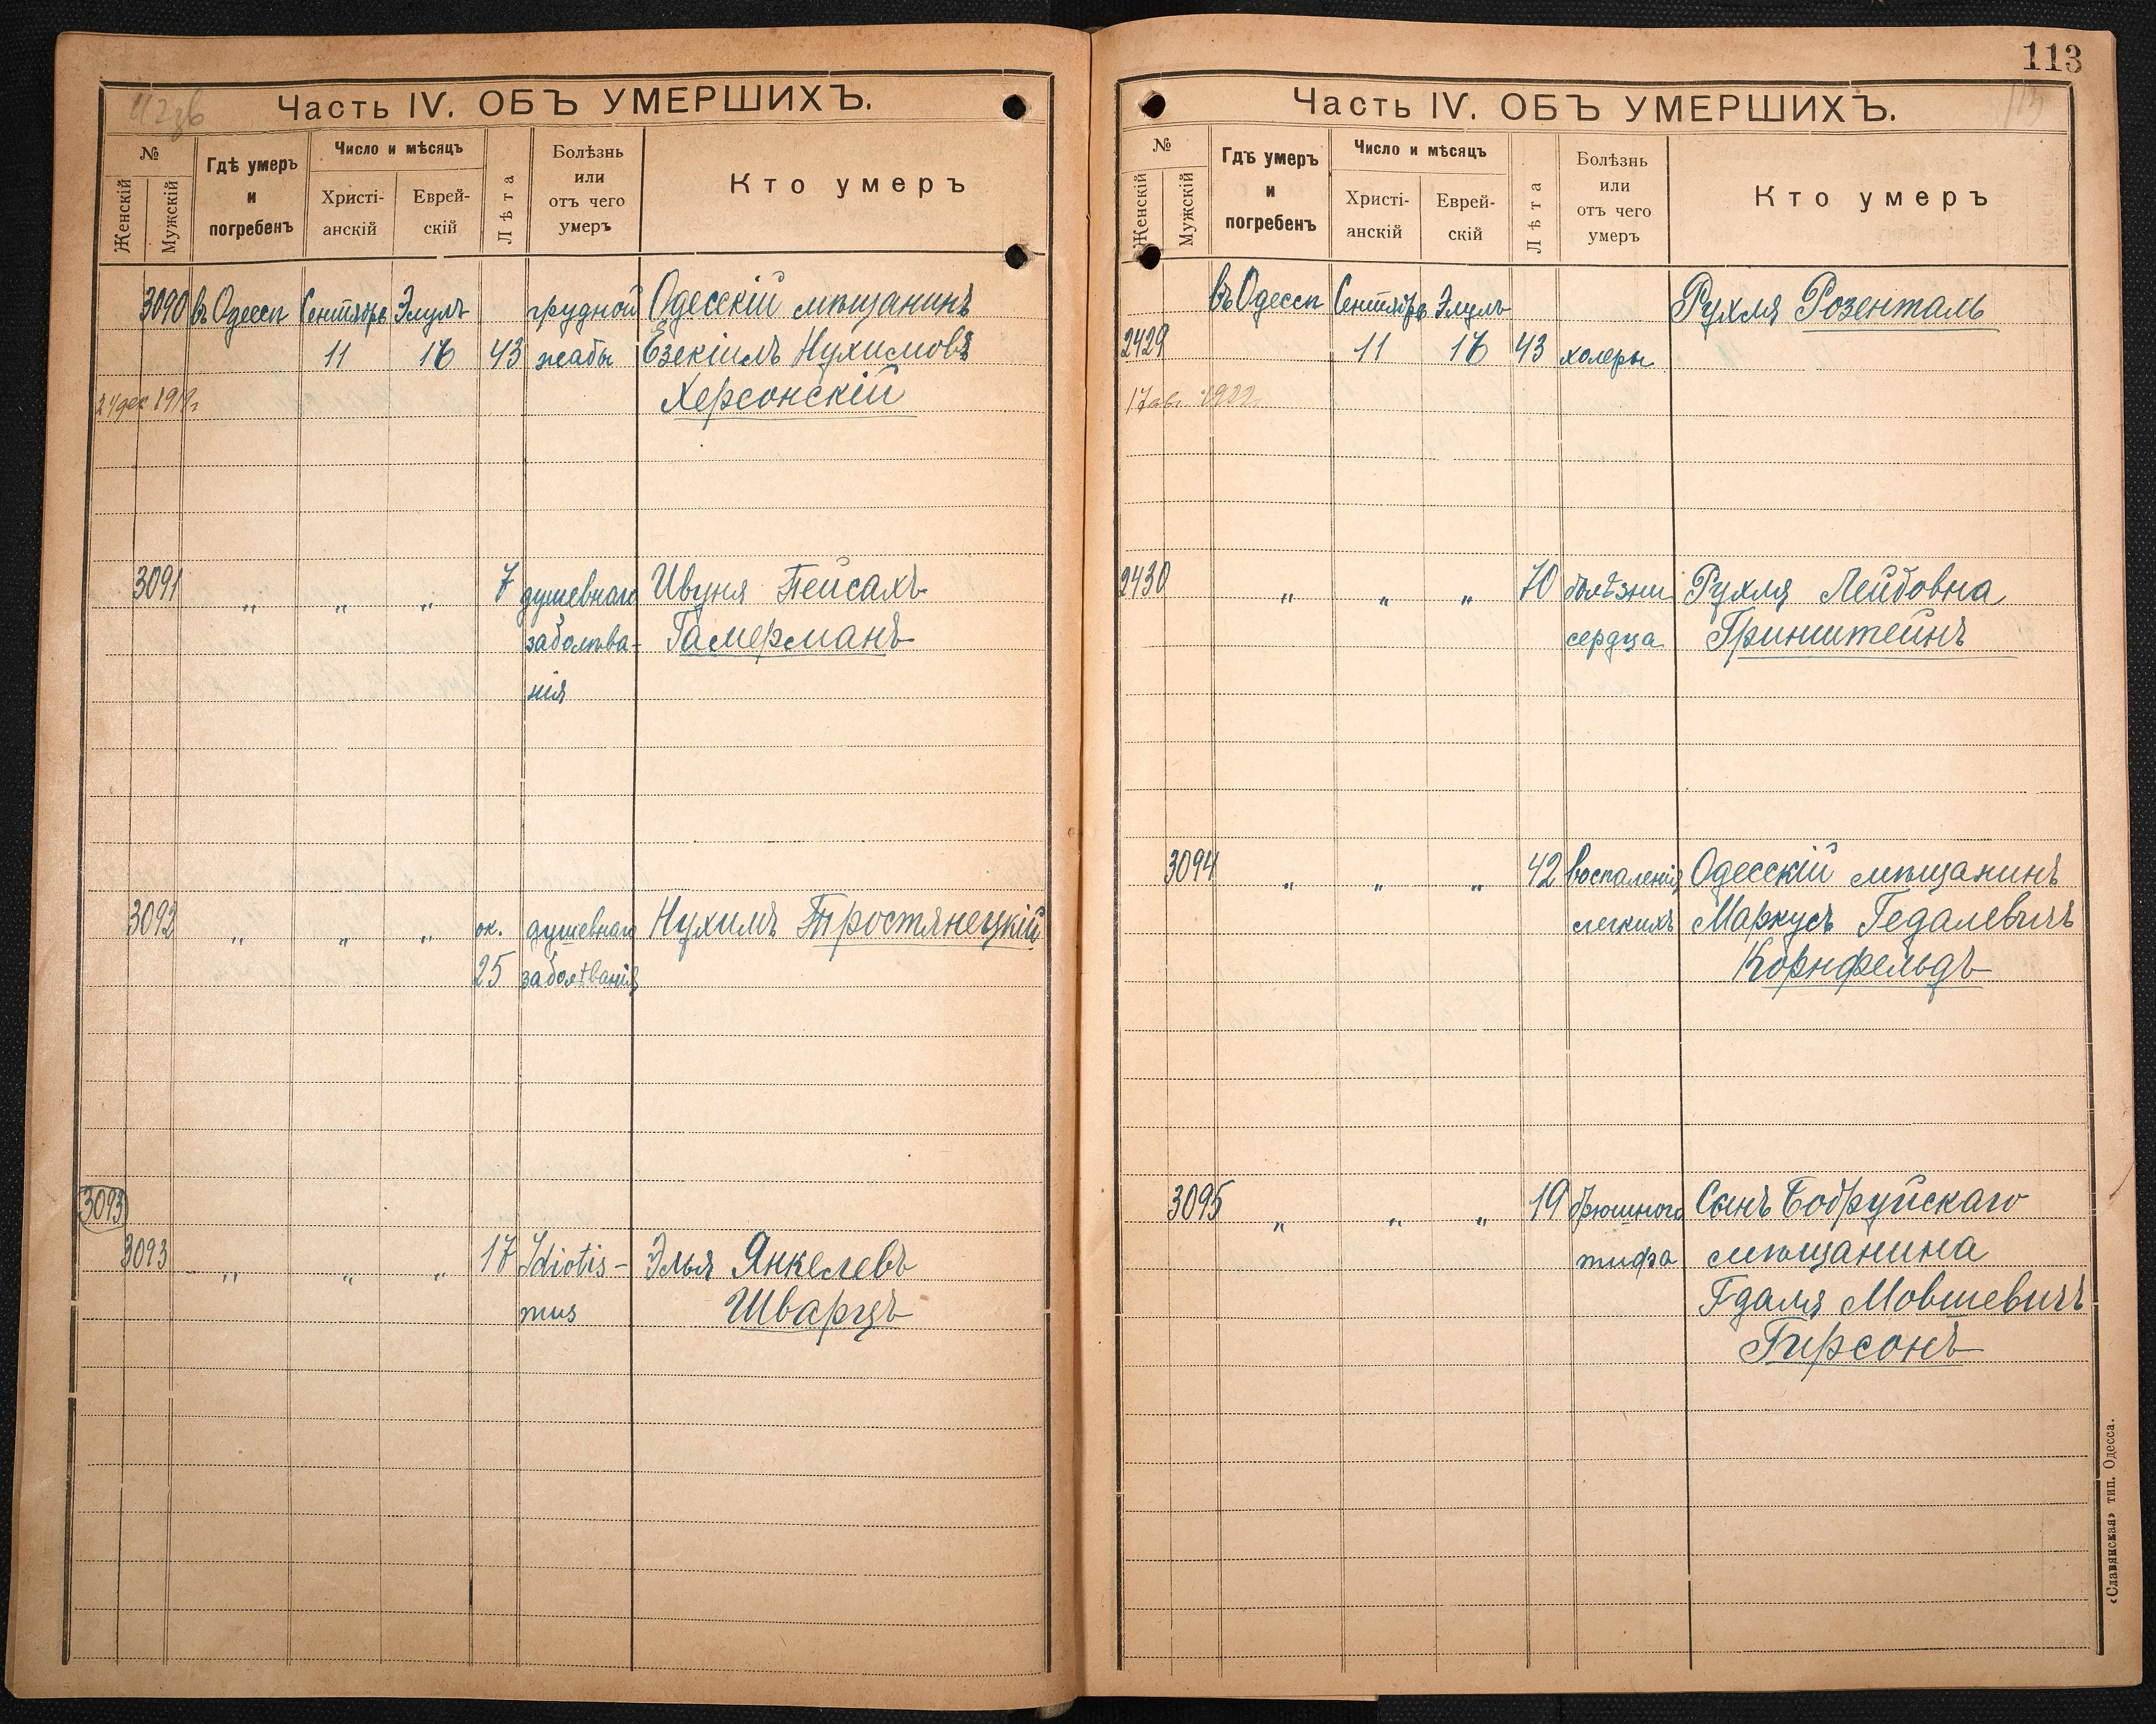 Часть IV. ОБЪ УМЕРШИХЪ.
№
Женскій
Мужскій
Гдѣ умеръ
и
погребенъ
Число и мѣсяцъ
Христі-
анскій
Еврей-
скій
Лѣта
Болѣзнь
или
отъ чего
умеръ
Кто умеръ
3090 въ Одессѣ Сентябрь Элулъ грудной Одесскій мѣщанинъ
11 16 43 жабы Езекіиль Нухимовъ
Херсонскій
3091 " " " 7 душевнаго Ивуня Пейсахъ
заболѣва- Гамерманъ
нія
3092 " " " ок. душевнаго Нухимъ Тростянецкій
25 заболѣванія
3093
3093 " " " 17 Idiotis- Элья Янкелевъ
mus Шварцъ
113
Часть IV. ОБЪ УМЕРШИХЪ.
№
Женскій
Мужскій
Гдѣ умеръ
и
погребенъ
Число и мѣсяцъ
Христі-
анскій
Еврей-
скій
Лѣта
Болѣзнь
или
отъ чего
умеръ
Кто умеръ
въ Одессѣ Сентябрь Элулъ Рухля Розенталь
2429 11 16 43 холеры
2430 " " " 70 болѣзни Рухля Лейбовна
сердца Гринштейнъ
3094 " " " 42 воспаленія Одесскій мѣщанинъ
легкихъ Маркусъ Гедалевичъ
Корнфельдъ
3095 " " " 19 брюшного Сынъ Бобруйскаго
тифа мѣщанина
Гдаля Мовшевичъ
Гирсонъ
«Славянская» тип. Одесса.